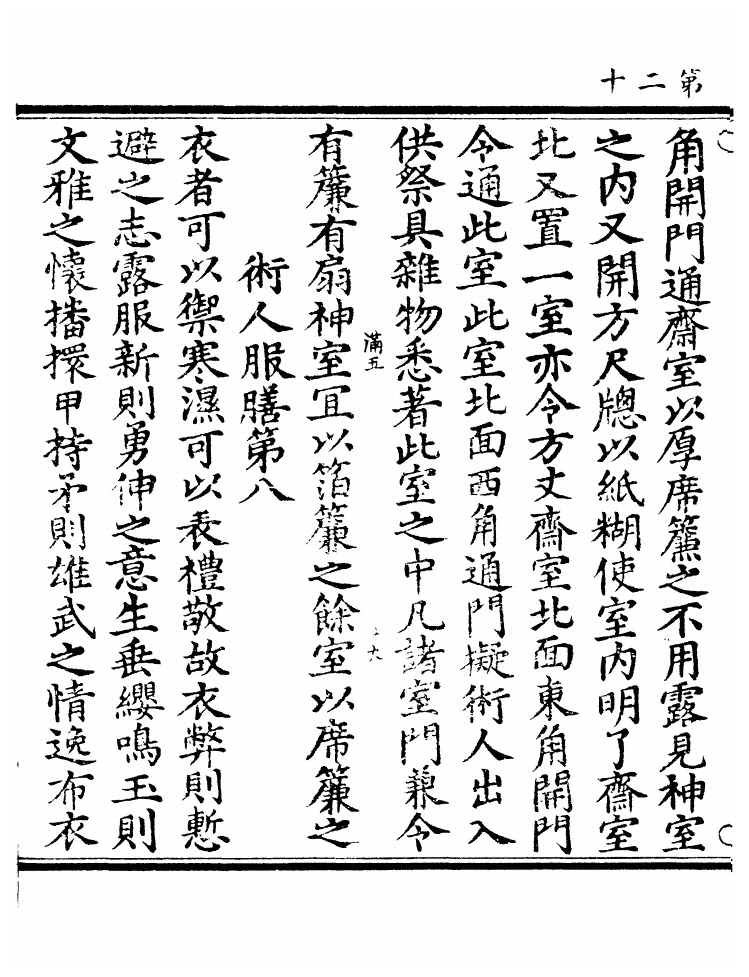 第二十
角開門通齋室以厚席簾之不用露見神室
之内又開方尺牎以紙糊使室内明了齋室
北又置一室亦令方丈齋室北面東角開門
令通此室此室北面西角通門擬術人出入
供祭具雜物悉著此室之中凡諸室門兼令
滿五
有簾有扇神室冝以箔簾之餘室以席簾之
術人服膳第八
衣者可以禦寒濕可以表禮敬故衣弊則慙
避之志露服新則勇伸之意生垂纓鳴玉則
文雅之懷播擐甲持矛則雄武之情逸布衣